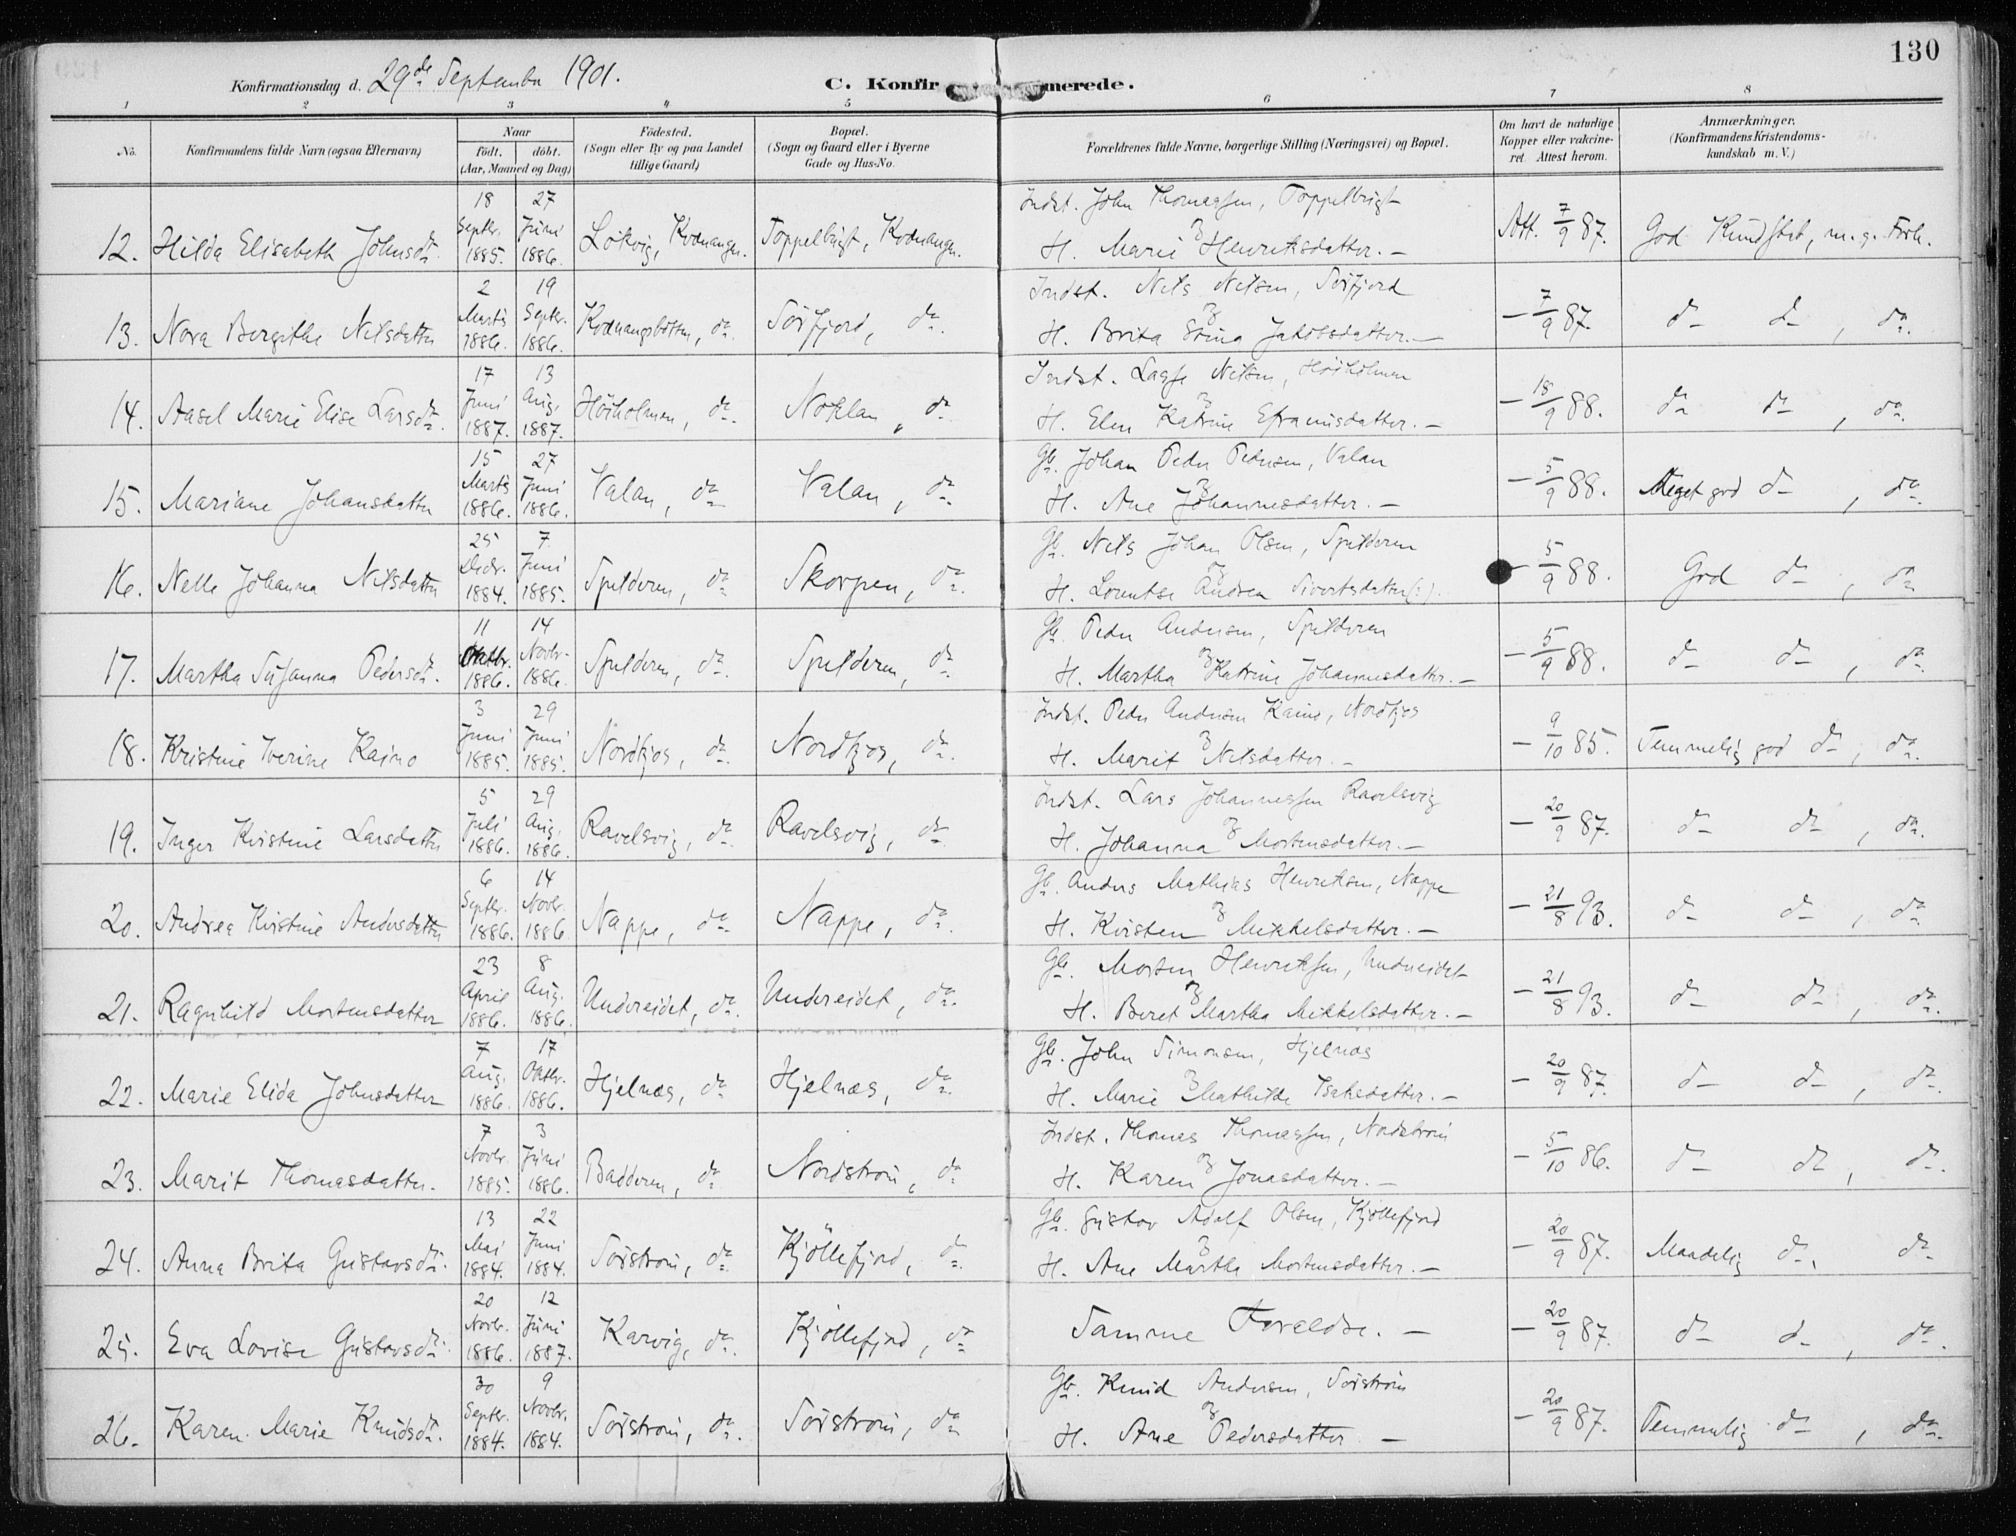 130
Konfirmationsdag d. 29de September 1901. C. Konfirmerede.
1 2 3 4 5 6 7 8
No. Konfirmandens fulde Navn (ogsaa Efternavn) Naar født. døbt. (Aar, Maaned og Dag) Fødested. (Sogn eller By og paa Landet tillige Gaard) Bopæl. (Sogn og Gaard eller i Byerne Gade og Hus-No. Forældrenes fulde Navne, borgerlige Stilling (Næringsvei) og Bopæl. Om havt de naturlige Kopper eller vakcineret. Attest herom. Anmærkninger. (Konfirmandens Kristendomskundskab m. V.)
12. Hilda Elisabeth Johnsdr. 18 Septbr. 1885. 27 Juni 1886. Løkvig, Kvænangen. Toppelbugt, Kvænangen. Indst. John Thomassen, Toppelbugt
og H. Marie Henriksdatter. — Att. 7/9 87. God Kundskab, m. g. Forh.
13. Nora Bergithe Nilsdatter 2 Marts 1886. 19 Septbr. 1886. Kvænangsbotten, do. Sørfjord, do. Indst. Nils Nilsen, Sørfjord
og H. Brita Stina Jakobsdatter. — — 7/9 87. do do, do.
14. Aasel Marie Elise Larsdr. 17 Juni 1887. 13 Aug. 1887. Høiholmen, do. Noklan, do. Indst. Lasse Nilsen, Høiholmen
og H. Elen Katrine Efraimsdatter. — — 18/9 88. do do, do.
15. Mariane Johansdatter 15 Marts 1886. 27 Juni 1886. Valan, do. Valan, do. Gb. Johan Peder Pedersen, Valan
og H. Ane Johannesdatter. — — 5/9 88. Meget god do, do.
16. Nelle Johanna Nilsdatter 25 Decbr. 1884. 7 Juni 1885. Spilderen, do. Skorpen, do. Gb. Nils Johan Olsen, Spilderen
og H. Lorentse Andrea Sivertsdatter(:). — 5/9 88. God do, do.
17. Martha Susanna Pedersdr. 11 Oktbr. 1886. 14 Novbr. 1886. Spilderen, do. Spilderen, do. Gb. Peder Andersen, Spilderen
og H. Martha Katrine Johannesdatter. — — 5/9 88. do do, do.
18. Kristine Iverine Kaino 3 Juni 1885. 29 Juni 1885. Nordkjos, do. Nordkjos, do. Indst. Peder Andersen Kaino, Nordkjos
og H. Marit Nilsdatter. — — 9/10 85. Temmelig god do, do.
19. Inger Kristine Larsdatter 5 Juli 1886. 29 Aug. 1886. Ravelsvig, do. Ravelsvig, do. Indst. Lars Johannessen Ravelsvig
og H. Johanna Mortensdatter. — — 20/9 87. do do, do.
20. Andrea Kirstine Andersdatter 6 Septbr. 1886. 14 Novbr. 1886 Nappe, do. Nappe, do. Gb. Anders Mathias Henriksen, Nappe
og H. Kirsten Mikkelsdatter. — — 21/8 93. do do, do.
21. Ragnhild Mortensdatter 23 April 1886. 8 Aug. 1886. Undereidet, do. Undereidet, do. Gb. Morten Henriksen, Undereidet
og H. Beret Martha Mikkelsdatter. — — 21/8 93. do do, do.
22. Marie Elida Johnsdatter 7 Aug. 1886. 17 Oktbr. 1886. Hjelnæs, do. Hjelnæs, do. Gb. John Simonsen, Hjelnæs
og H. Marie Mathilde Isaksdatter. — — 20/9 87. do do, do.
23. Marit Thomasdatter. 7 Novbr. 1885. 3 Juni 1886. Badderen, do. Nordstrøm, do. Indst. Thomas Thomassen, Nordstrøm
og H. Karen Jonasdatter. — — 5/10 86. do do, do.
24. Anna Brita Gustavsdr. 13 Mai 1884. 22 Juni 1884. Sørstrøm, do. Kjøllefjord, do. Gb. Gustav Adolf Olsen, Kjøllefjord
og H. Ane Martha Mortensdatter. — — 20/9 87. Maadelig do, do.
25. Eva Lovise Gustavsdr. 20 Novbr. 1886. 12 Juni 1887. Karvig, do. Kjøllefjord, do. Samme Forældre. — — 20/9 87. do do, do.
26. Karen Marie Knudsdr. 30 Septbr. 1884. 9 Novbr. 1884. Sørstrøm, do. Sørstrøm, do. Gb. Knud Andersen, Sørstrøm
og H. Ane Pedersdatter — — 20/9 87. Temmelig do, do.